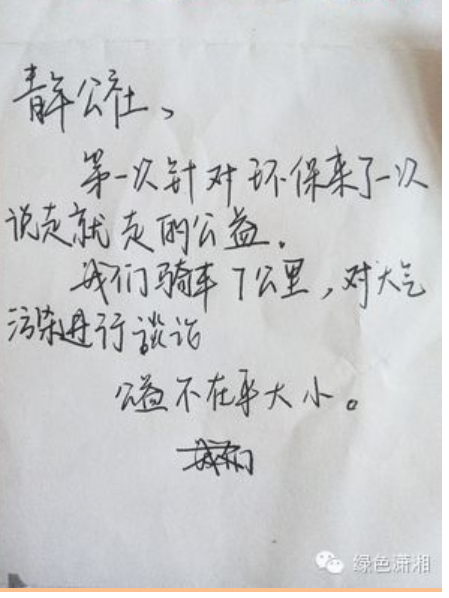 青年公社、
第一次针对环保来了一次
说走就走的公益.
我们骑车7公里，对大气
污染进行谈论
公益不在乎大小。
我们
绿色潇湘